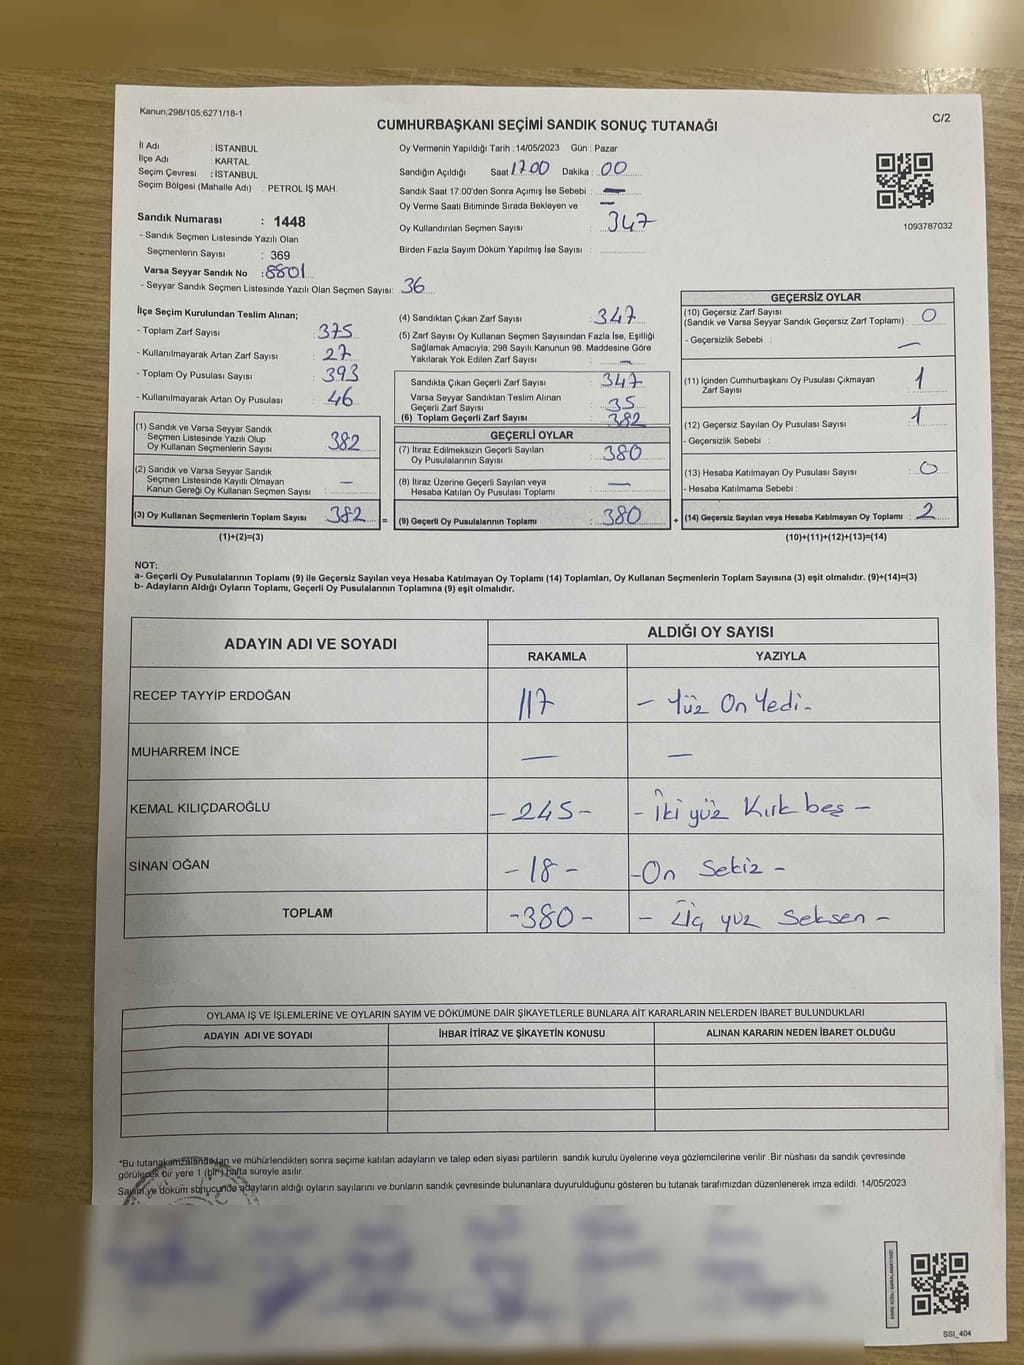 Kanun:298/105;6271/18-1
C/2
CUMHURBAŞKANI SEÇİMİ SANDIK SONUÇ TUTANAĞI
İl Adı : İSTANBUL
İlçe Adı : KARTAL
Seçim Çevresi : İSTANBUL
Seçim Bölgesi (Mahalle Adı) : PETROL İŞ MAH.
Sandık Numarası : 1448
- Sandık Seçmen Listesinde Yazılı Olan
Seçmenlerin Sayısı : 369
Varsa Seyyar Sandık No : 8801
- Seyyar Sandık Seçmen Listesinde Yazılı Olan Seçmen Sayısı: 36
Oy Vermenin Yapıldığı Tarih : 14/05/2023 Gün : Pazar
Sandığın Açıldığı Saat 17.00 Dakika : 00
Sandık Saat 17:00'den Sonra Açımış İse Sebebi : —
Oy Verme Saati Bitiminde Sırada Bekleyen ve —
Oy Kullandırılan Seçmen Sayısı : 347
Birden Fazla Sayım Döküm Yapılmış İse Sayısı :
1093787032
İlçe Seçim Kurulundan Teslim Alınan;
- Toplam Zarf Sayısı : 375
- Kullanılmayarak Artan Zarf Sayısı : 27
- Toplam Oy Pusulası Sayısı : 393
- Kullanılmayarak Artan Oy Pusulası : 46
(1) Sandık ve Varsa Seyyar Sandık
Seçmen Listesinde Yazılı Olup
Oy Kullanan Seçmenlerin Sayısı : 382
(2) Sandık ve Varsa Seyyar Sandık
Seçmen Listesinde Kayıtlı Olmayan
Kanun Gereği Oy Kullanan Seçmen Sayısı : —
(3) Oy Kullanan Seçmenlerin Toplam Sayısı : 382 =
(1)+(2)=(3)
(4) Sandıktan Çıkan Zarf Sayısı : 347
(5) Zarf Sayısı Oy Kullanan Seçmen Sayısından Fazla İse, Eşitliği
Sağlamak Amacıyla; 298 Sayılı Kanunun 98. Maddesine Göre
Yakılarak Yok Edilen Zarf Sayısı : —
Sandıkta Çıkan Geçerli Zarf Sayısı : 347
Varsa Seyyar Sandıktan Teslim Alınan
Geçerli Zarf Sayısı : 35
(6) Toplam Geçerli Zarf Sayısı : 382
GEÇERLİ OYLAR
(7) İtiraz Edilmeksizin Geçerli Sayılan
Oy Pusulalarının Sayısı : 380
(8) İtiraz Üzerine Geçerli Sayılan veya
Hesaba Katılan Oy Pusulası Toplamı : —
(9) Geçerli Oy Pusulalarının Toplamı : 380 +
GEÇERSİZ OYLAR
(10) Geçersiz Zarf Sayısı
(Sandık ve Varsa Seyyar Sandık Geçersiz Zarf Toplamı) : 0
- Geçersizlik Sebebi : —
(11) İçinden Cumhurbaşkanı Oy Pusulası Çıkmayan
Zarf Sayısı : 1
(12) Geçersiz Sayılan Oy Pusulası Sayısı : 1
- Geçersizlik Sebebi :
(13) Hesaba Katılmayan Oy Pusulası Sayısı : 0
- Hesaba Katılmama Sebebi :
(14) Geçersiz Sayılan veya Hesaba Katılmayan Oy Toplamı : 2
(10)+(11)+(12)+(13)=(14)
NOT:
a- Geçerli Oy Pusulalarının Toplamı (9) ile Geçersiz Sayılan veya Hesaba Katılmayan Oy Toplamı (14) Toplamları, Oy Kullanan Seçmenlerin Toplam Sayısına (3) eşit olmalıdır. (9)+(14)=(3)
b- Adayların Aldığı Oyların Toplamı, Geçerli Oy Pusulalarının Toplamına (9) eşit olmalıdır.
ADAYIN ADI VE SOYADI
ALDIĞI OY SAYISI
RAKAMLA YAZIYLA
RECEP TAYYİP ERDOĞAN 117 - Yüz On Yedi -
MUHARREM İNCE — —
KEMAL KILIÇDAROĞLU - 245 - - İki yüz Kırk beş -
SİNAN OĞAN - 18 - - On Sekiz -
TOPLAM - 380 - - Üç yüz Seksen -
OYLAMA İŞ VE İŞLEMLERİNE VE OYLARIN SAYIM VE DÖKÜMÜNE DAİR ŞİKAYETLERLE BUNLARA AİT KARARLARIN NELERDEN İBARET BULUNDUKLARI
ADAYIN ADI VE SOYADI İHBAR İTİRAZ VE ŞİKAYETİN KONUSU ALINAN KARARIN NEDEN İBARET OLDUĞU
*Bu tutanak imzalandıktan ve mühürlendikten sonra seçime katılan adayların ve talep eden siyasi partilerin sandık kurulu üyelerine veya gözlemcilerine verilir .Bir nüshası da sandık çevresinde
görülecek bir yere 1 (bir) hafta süreyle asılır.
Sayım ve döküm sonucunda adayların aldığı oyların sayılarını ve bunların sandık çevresinde bulunanlara duyurulduğunu gösteren bu tutanak tarafımızdan düzenlenerek imza edildi. 14/05/2023
SSI_404